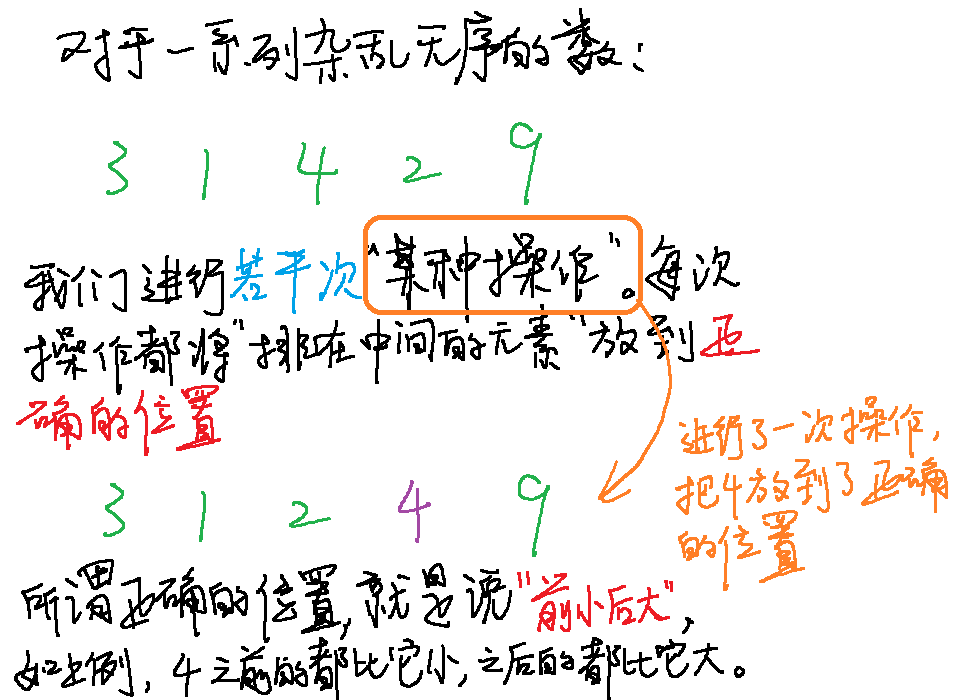 对于一系列杂乱无序的数：
3 1 4 2 9
我们进行若干次“某种操作”。每次
操作都将“排在中间的元素”放到正
确的位置
进行了一次操作，
把4放到了正确
的位置
3 1 2 4 9
所谓正确的位置，就是说“前小后大”，
如上例，4之前的都比它小，之后的都比它大。